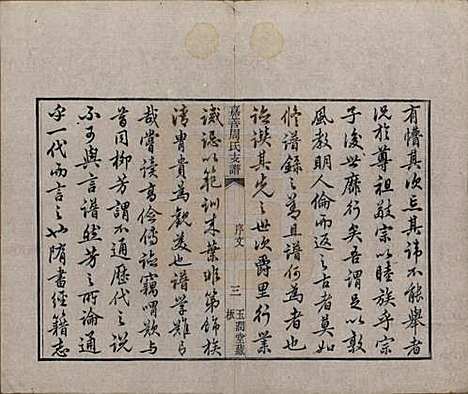 有懵其次忘其諱不能舉者
況於尊祖敬宗以睦族乎宗
子後世靡行矣吾謂足以敦
風教明人倫而返之古者莫如
修譜錄之為具譜何為者也
詒譔其先之世次爵里行業
嘉善周氏支譜
序文
三
玉潤堂藏板
誡誌以範訓來葉非第飾族
清胄貴為觀美也譜學難與
哉嘗讀高儉傳詒竊喟歎與
昔同柳芳謂不通歷代之說
不可與言譜然芳之所論通
乎一代而言之也隋書經籍志